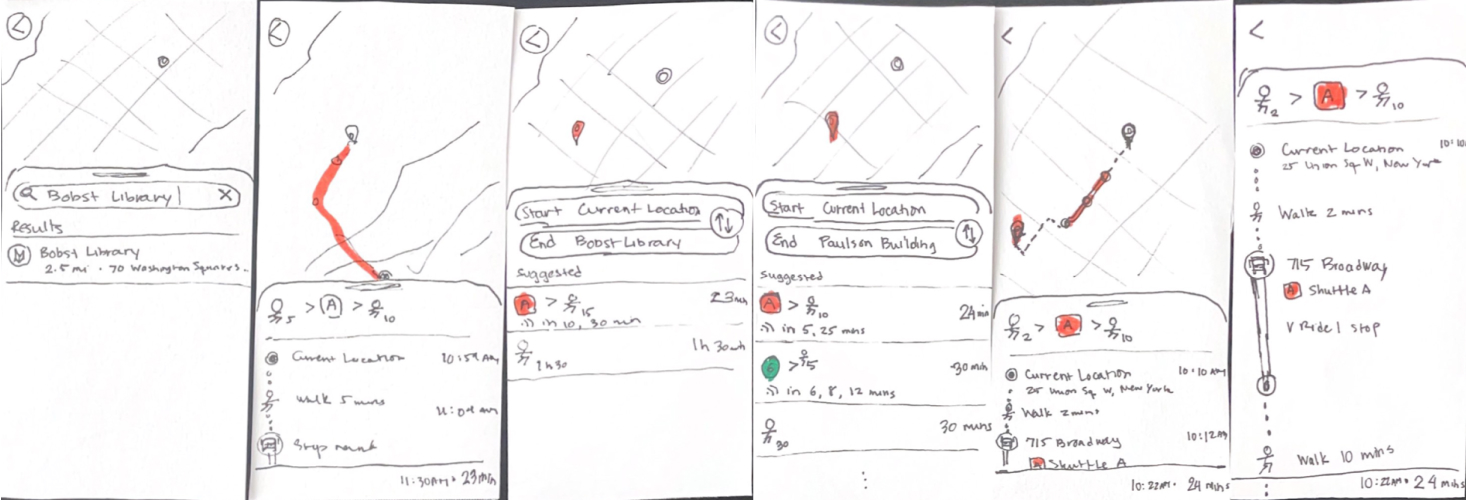 Bobst Library
X
Results
Bobst Library
2.5 mi · 70 Washington Square S..
5 > A > 10
Current Location 10:59 AM
Walk 5 mins
11:04 AM
Stop name
11:30AM · 23 min
Start Current Location
End Bobst Library
Suggested
A > 15 23 min
in 10, 30 min
1h 30 min
1h30
Start Current Location
End Paulson Building
Suggested
A > 10 24 min
in 5, 25 mins
6 > 5 30 min
in 6, 8, 12 mins
30 30 mins
2 > A > 10
Current Location 10:10 AM
25 Union Sq W, New York
Walk 2 mins
715 Broadway 10:12 AM
A Shuttle A
10:22AM · 24 mins
2 > A > 10
Current Location 10:10
25 Union Sq W, New York
Walk 2 mins
715 Broadway
A Shuttle A
V Ride 1 stop
Walk 10 mins
10:22AM · 24 mins